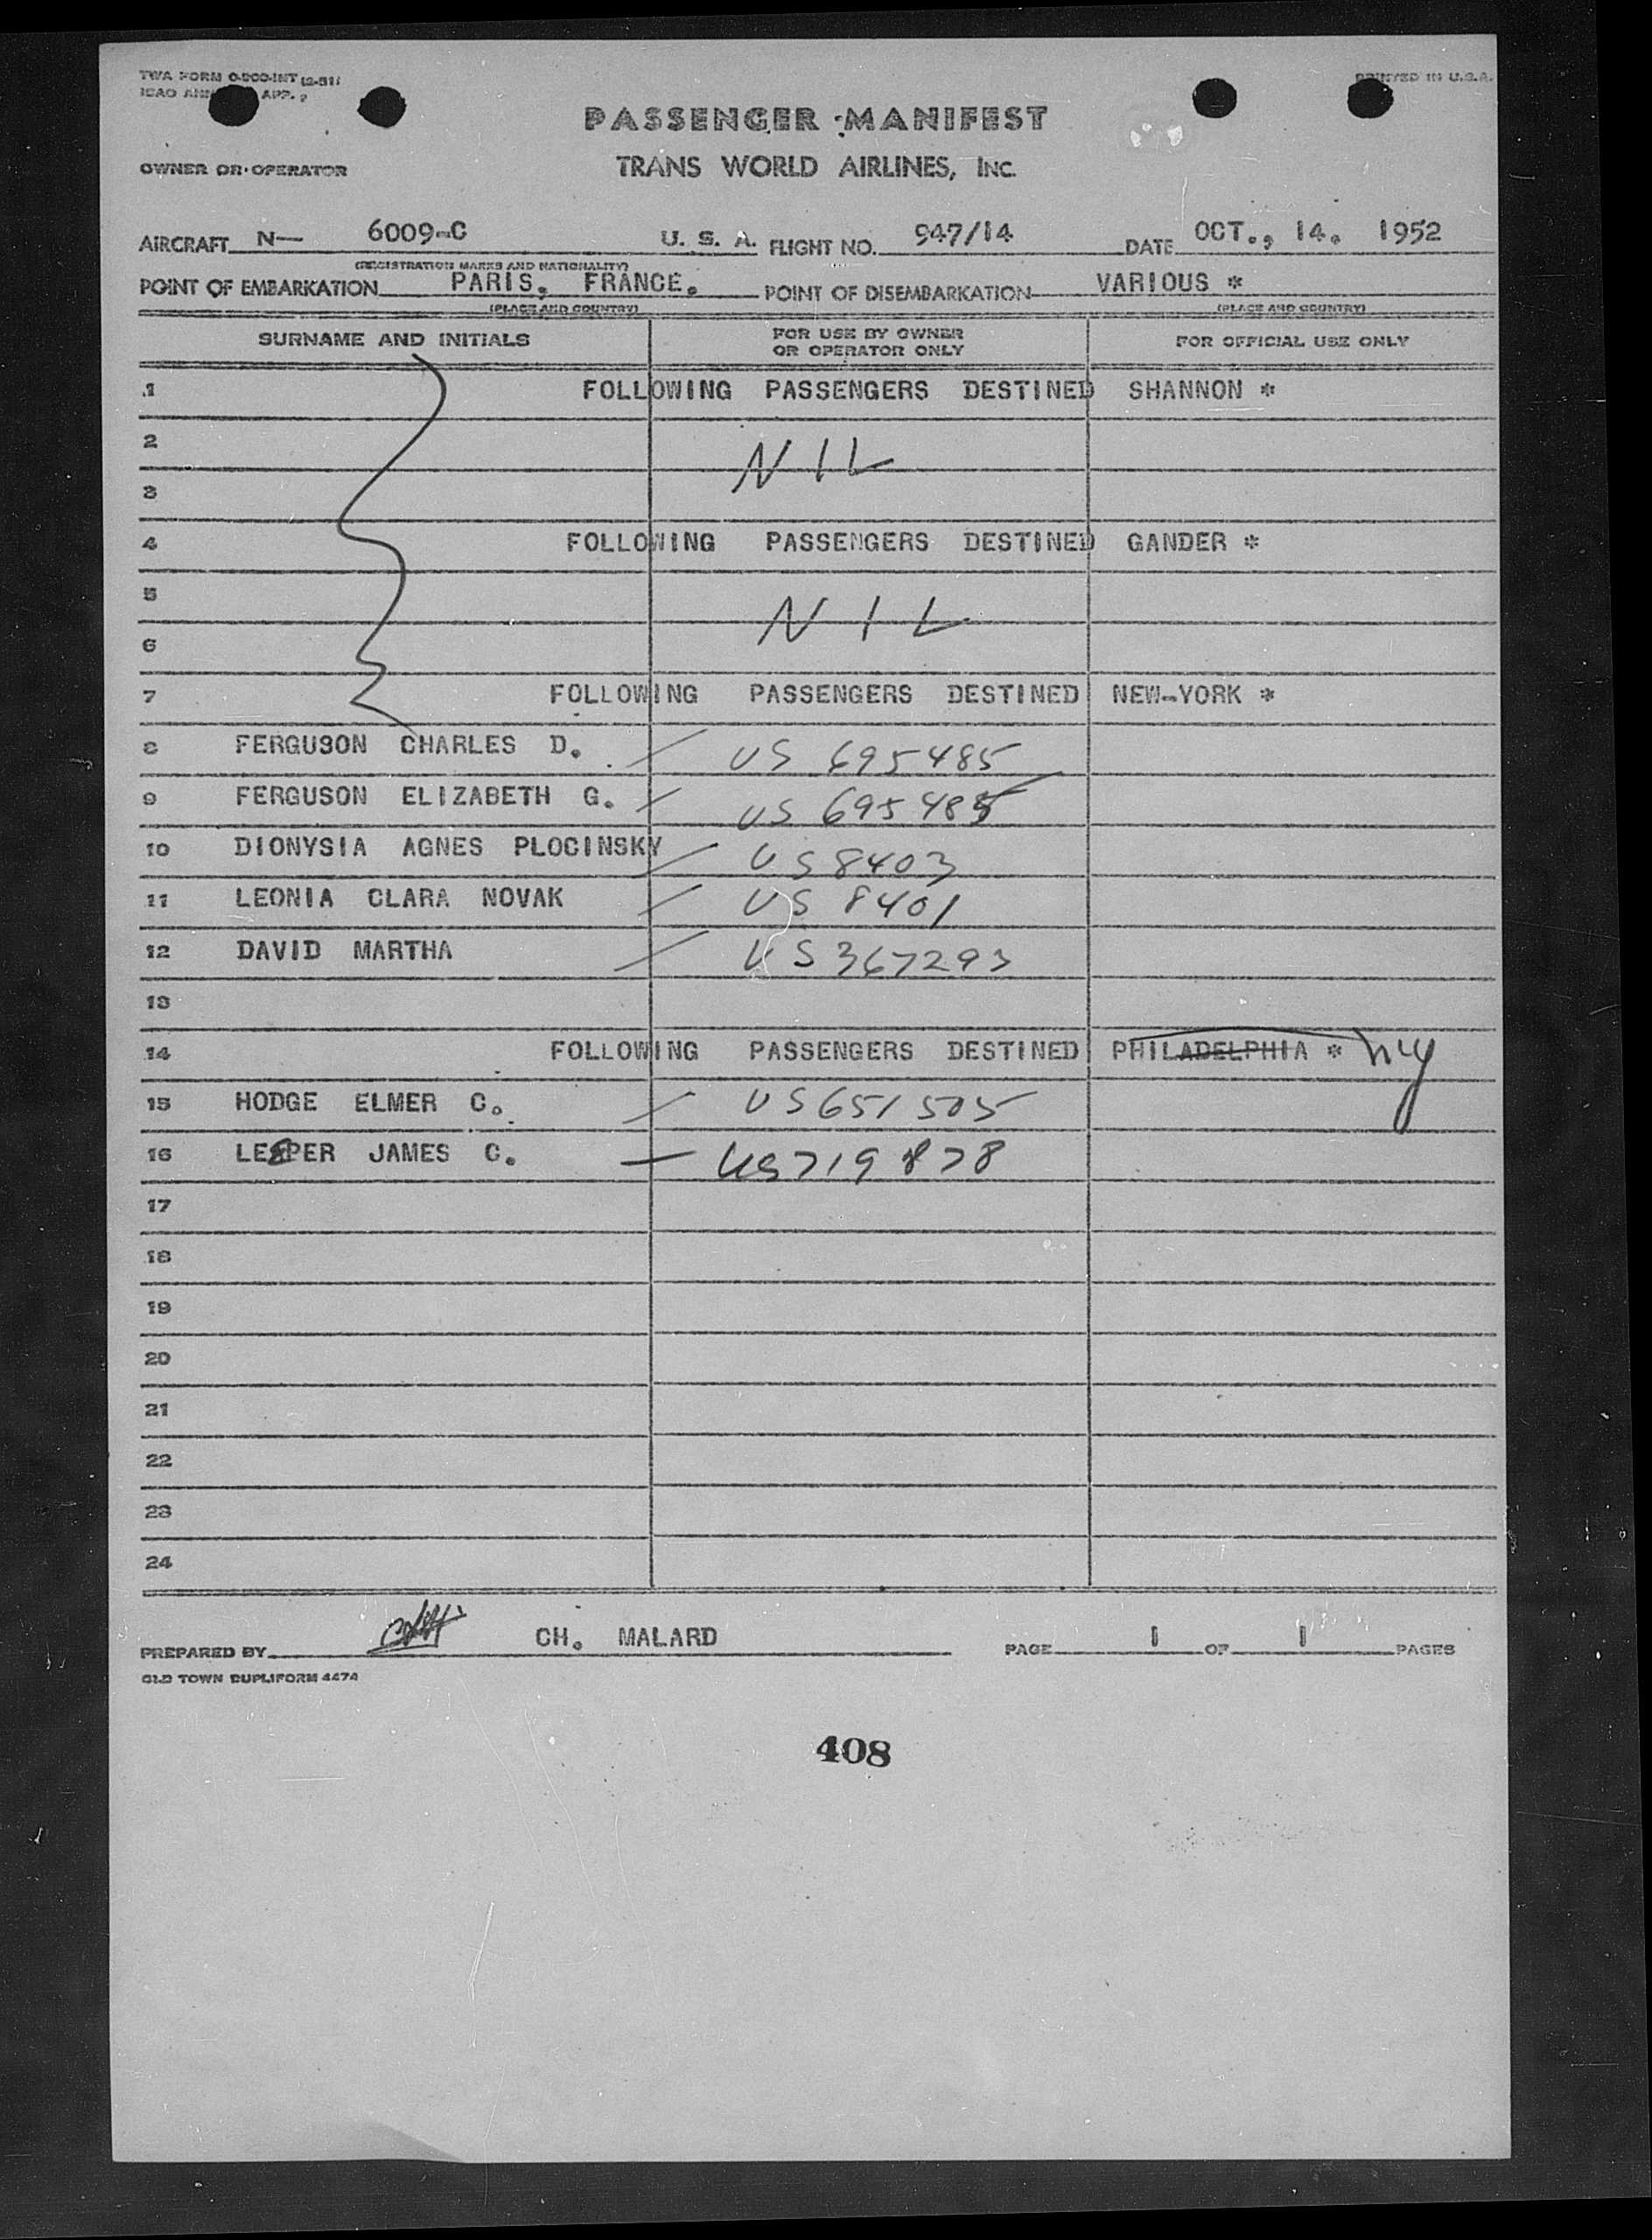 TWA FORM O-500-INT (2-51)
PRINTED IN U.S.A.
ICAO APP.
PASSENGER MANIFEST
OWNER OR OPERATOR
TRANS WORLD AIRLINES, INC.
AIRCRAFT N— 6009-C U. S. A. FLIGHT NO. 947/14 DATE OCT., 14. 1952
(REGISTRATION MARKS AND NATIONALITY)
POINT OF EMBARKATION PARIS, FRANCE. POINT OF DISEMBARKATION VARIOUS *
(PLACE AND COUNTRY) (PLACE AND COUNTRY)
SURNAME AND INITIALS FOR USE BY OWNER OR OPERATOR ONLY FOR OFFICIAL USE ONLY
1 FOLLOWING PASSENGERS DESTINED SHANNON *
2 NIL
3
4 FOLLOWING PASSENGERS DESTINED GANDER *
5 NIL
6
7 FOLLOWING PASSENGERS DESTINED NEW-YORK *
8 FERGUSON CHARLES D. US 695485
9 FERGUSON ELIZABETH G. US 695485
10 DIONYSIA AGNES PLOCINSKY US 8403
11 LEONIA CLARA NOVAK US 8401
12 DAVID MARTHA US 367293
13
14 FOLLOWING PASSENGERS DESTINED PHILADELPHIA * NY
15 HODGE ELMER C. US 651505
16 LEEPER JAMES C. US 719878
17
18
19
20
21
22
23
24
PREPARED BY CH. MALARD PAGE 1 OF 1 PAGES
OLD TOWN DUPLIFORM 4474
408